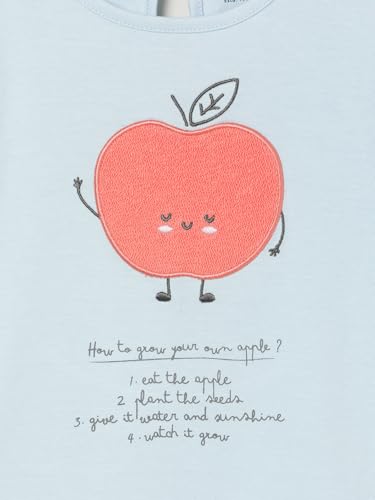 How to grow your own apple?
1. eat the apple
2 plant the seeds
3. give it water and sunshine
4. watch it grow